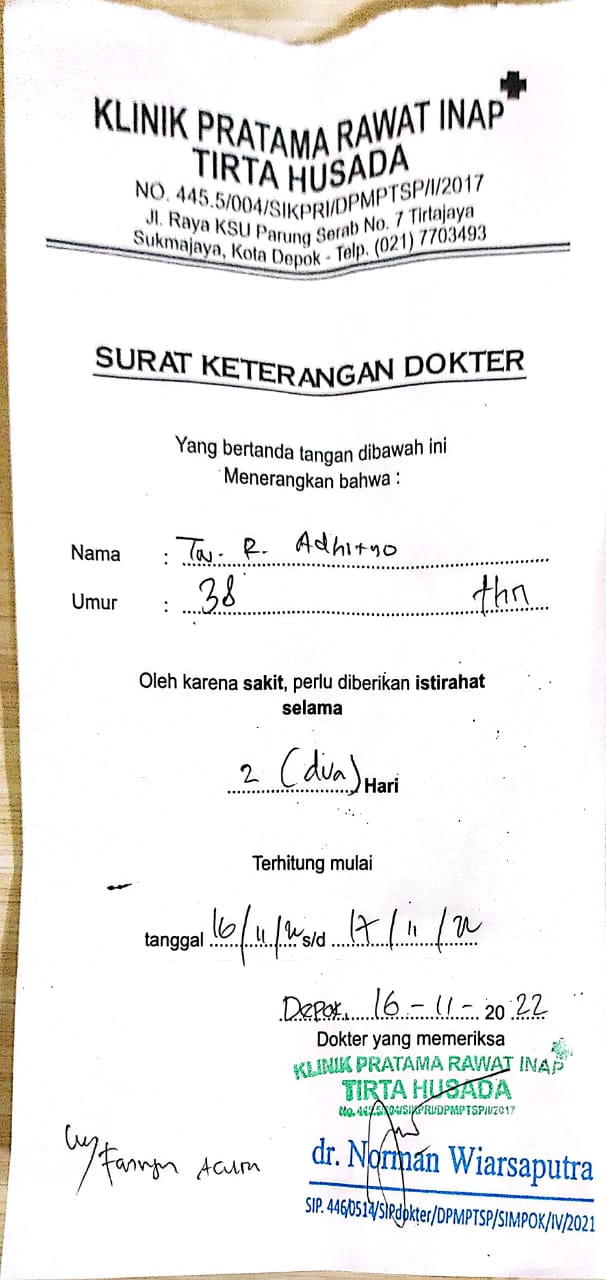 KLINIK PRATAMA RAWAT INAP
TIRTA HUSADA
NO. 445.5/004/SIKPRI/DPMPTSP/I/2017
Jl. Raya KSU Parung Serab No. 7 Tirtajaya
Sukmajaya, Kota Depok - Telp. (021) 7703493
SURAT KETERANGAN DOKTER
Yang bertanda tangan dibawah ini
Menerangkan bahwa :
Nama : Tn. R. Adhityo
Umur : 38 thn
Oleh karena sakit, perlu diberikan istirahat
selama
2 (dua) Hari
Terhitung mulai
tanggal 16/11/22 s/d 17/11/22
Depok, 16-11-2022
Dokter yang memeriksa
KLINIK PRATAMA RAWAT INAP
TIRTA HUSADA
No. 445.5/004/SIKPRI/DPMPTSP/I/2017
dr. Norman Wiarsaputra
SIP. 446/0514/SIPdokter/DPMPTSP/SIMPOK/IV/2021